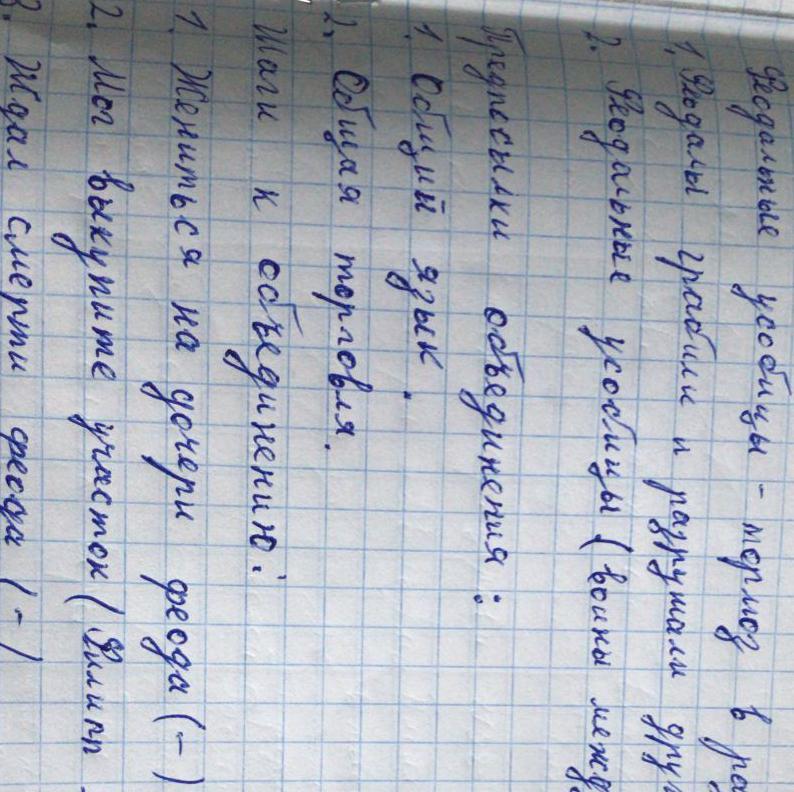 Феодальные усобицы - тормоз в ра
1. Феодалы грабили и разрушали друг
2. Феодальные усобицы (войны межд
Предпосылки объединения:
1. Общий язык.
2. Общая торговля.
Шаги к объединению:
1. Жениться на дочери феода (-)
2. Мог выкупите участок (Филипп
3. Ждал смерти феода (-)